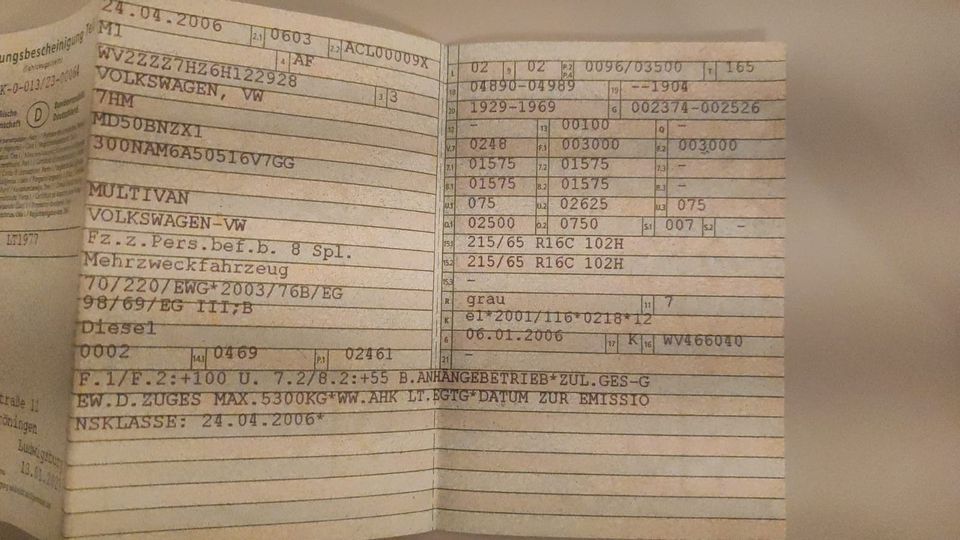 ungsbescheinigung Te
(Fahrzeugschein)
K-0-013/23-00064
D
Bundesrepublik
Deutschland
LT1977
traße 11
öningen
Ludwigsburg
24.04.2006 2.1 0603 2.2 ACL00009X
M1 4 AF
WV2ZZZ7HZ6H122928 3 3
VOLKSWAGEN, VW
7HM
MD50BNZX1
300NAM6A50516V7GG
MULTIVAN
VOLKSWAGEN-VW
Fz.z.Pers.bef.b. 8 Spl.
Mehrzweckfahrzeug
70/220/EWG*2003/76B/EG
98/69/EG III;B
Diesel
0002 14.1 0469 P.1 02461
L 02 9 02 P.2 P.4 0096/03500 T 165
18 04890-04989 19 --1904
20 1929-1969 G 002374-002526
12 - 13 00100 Q -
V.7 0248 F.1 003000 F.2 003000
7.1 01575 7.2 01575 7.3 -
8.1 01575 8.2 01575 8.3 -
U.1 075 U.2 02625 U.3 075
O.1 02500 O.2 0750 S.1 007 S.2 -
15.1 215/65 R16C 102H
15.2 215/65 R16C 102H
15.3 -
R grau 11 7
K e1*2001/116*0218*12
6 06.01.2006 17 K 16 WV466040
21 -
F.1/F.2:+100 U. 7.2/8.2:+55 B.ANHÄNGEBETRIEB*ZUL.GES-G
EW.D.ZUGES MAX.5300KG*WW.AHK LT.EGTG*DATUM ZUR EMISSIO
NSKLASSE: 24.04.2006*